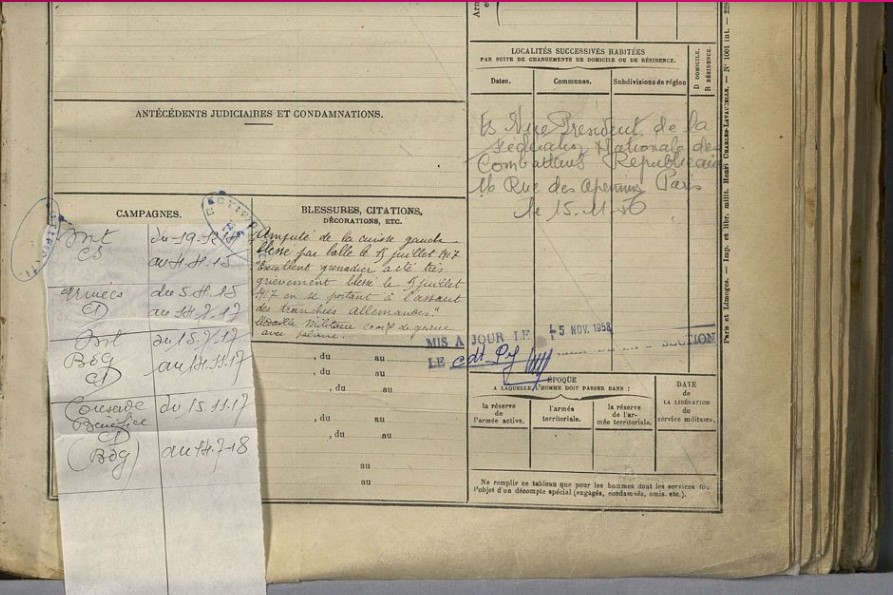 LOCALITÉS SUCCESSIVES HABITÉES
PAR SUITE DE CHANGEMENTS DE DOMICILE OU DE RÉSIDENCE.
Dates.
Communes.
Subdivisions de région
D DOMICILE.
R RÉSIDENCE.
Vice President de la
Nationale des
Combattants Republicains
16 Rue des Apennins Paris
le 15.11.56
ANTÉCÉDENTS JUDICIAIRES ET CONDAMNATIONS.
CAMPAGNES.
Int
CS
au 4.11.15
Armées
CD
du 5.11.15
au 14.7.17
Int
Bog
CD
au 15.7.17
au 14.11.17
Conserve
bénéfice
CD
(Bog)
du 15.11.17
au 14.7-18
BLESSURES, CITATIONS,
DÉCORATIONS, ETC.
Amputé de la cuisse gauche
blessé par balle le 15 juillet 1917
"Excellent grenadier a été très
grièvement blessé le 15 juillet
1917 en se portant à l'assaut
des tranchées allemandes."
Médaille Militaire croix de guerre
avec palme.
, du au
, du au
, du au
, du au
, du au
au
au
MIS A JOUR LE 15 NOV. 1956
LE
SECTION
ÉPOQUE
A LAQUELLE L'HOMME DOIT PASSER DANS :
la réserve
de
l'armée active.
l'armée
territoriale.
la réserve
de l'ar-
mée territoriale.
DATE
de
LA LIBÉRATION
du
service militaire.
Ne remplir ce tableau que pour les hommes dont les services
l'objet d'un décompte spécial (engagés, condamnés, omis. etc.).
Paris et Limoges. — Imp. et libr. milit. Henri CHARLES-LAVAUZELLE. — N° 1001 int.